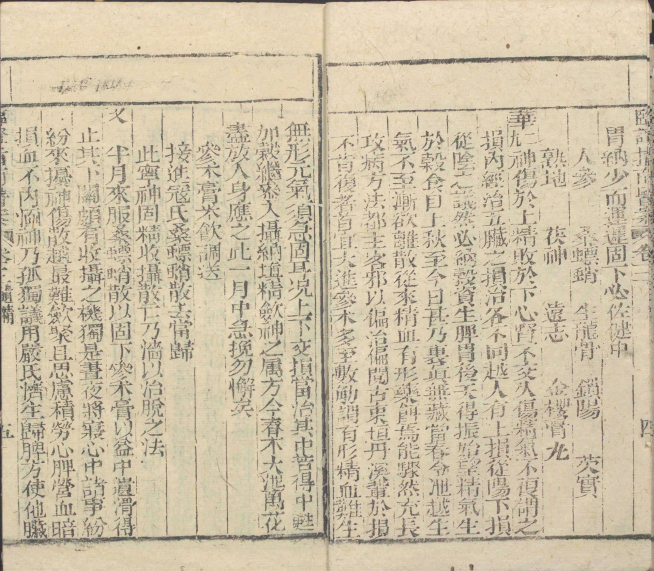 臨證指南醫案 卷二
胃納少而運遲固下必佐健中
人參 桑螵蛸 生龍骨 鎖陽 芡實
熟地 茯神 遠志 金櫻膏丸
華 神傷於上精敗於下心腎不交久傷精氣不復謂之
損內經治五臟之損治各不同越人有上損從陽下損
從陰之議然必納穀資生脾胃後天得振始望精氣生
於穀食自上秋至今日甚乃裏真無藏當春令泄越生
氣不至漸欲離散從來精血有形藥餌焉能驟然充長
攻病方法都主客邪以偏治偏聞古東垣丹溪輩於損
不肯復者首宜大進參朮多至數觔謂有形精血難生
無形元氣須急固耳況上下交損當治其中若得中
加穀繼參入攝納填精斂神之屬方今春木大泄萬花
盡放人身應之此一月中急挽勿懈矣
參朮膏米飲調送
接進寇氏桑螵蛸散去當歸
此寧神固精收攝散亡乃濇以治脫之法
又 半月來服桑螵蛸散以固下參朮膏以益中遺滑得
止其下關頗有收攝之機獨是晝夜將寐心中諸事紛
紛來擾神傷散越最難斂聚且思慮積勞心脾營血暗
損血不內涵神乃孤獨議用嚴氏濟生歸脾方使他臟